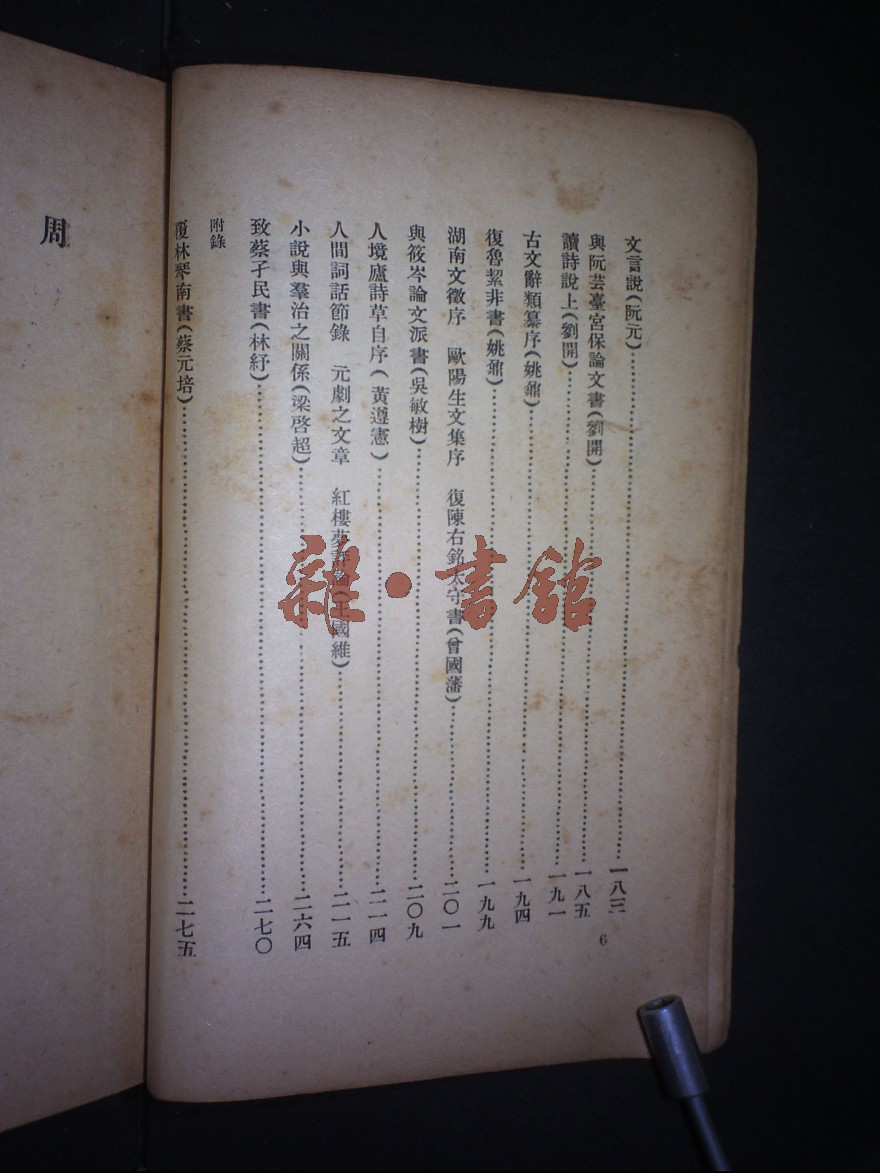 文言說(阮元)…………一八三
與阮芸臺宮保論文書(劉開)…………一八五
讀詩說上(劉開)…………一九一
古文辭類纂序(姚鼐)…………一九四
復魯絜非書(姚鼐)…………一九九
湖南文徵序　歐陽生文集序　復陳右銘太守書(曾國藩)…………二〇一
與筱岑論文派書(吳敏樹)…………二〇九
人境廬詩草自序(黃遵憲)…………二一四
人間詞話節錄　元劇之文章　紅樓夢評論(王國維)…………二一五
小說與羣治之關係(梁啓超)…………二六四
致蔡孑民書(林紓)…………二七〇
附錄
覆林琴南書(蔡元培)…………二七五
6
周
雜·書館